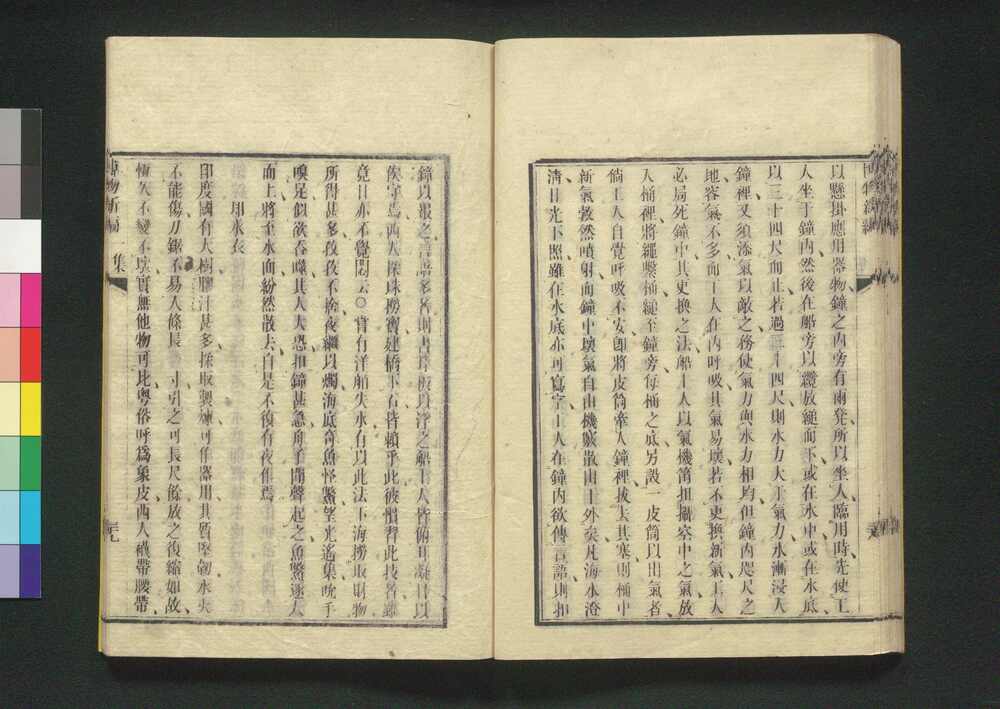 以懸掛應用器物鐘之內旁有兩凳所以坐人臨用時先使工
人坐于鐘內然後在船旁以纜放縋而下或在水中或在水底
以三十四尺而止若過三十四尺則水力大于氣力水漸浸入
鐘裡又須添氣以敵之務使氣力與水力相均但鐘內咫尺之
地容氣不多而工人在內呼吸其氣易壞若不更換新氣工人
必局死鐘中其更換之法船上人以氣機筩抽攝空中之氣放
入桶裡將繩繫桶縋至鐘旁每桶之底另設一皮筒以出氣者
倘工人自覺呼吸不安卽將皮筒牽入鐘裡拔去其塞則桶中
新氣敦然噴射而鐘中壞氣自由機竅散出于外矣凡海水澄
清日光下照雖在水底亦可寫字工人在鐘內欲傳言語則扣
鐘以報之言語多者則書片板以浮之船上人皆俯耳凝目以
俟守焉西人探珠撈寶建橋下石皆賴乎此彼慣習此技者雖
竟日亦不覺悶云〇嘗有洋舶失水有以此法下海撈取財物
所得甚多孜孜不捨夜繼以燭海底奇魚怪鱉望光遙集吮手
嗅足似欲吞噬其人大恐扣鐘甚急舟子聞聲起之魚鱉逐人
而上將至水面紛然散去自是不復有夜作焉
泅水衣
印度國有大樹膠汁甚多採取製煉可作器用其質堅韌水火
不能傷刀鋸不易入條長 寸引之可長尺餘放之復縮如故
恆久不變不壞實無他物可比粵俗呼爲象皮西人襪帶腰帶
博物新編
一集